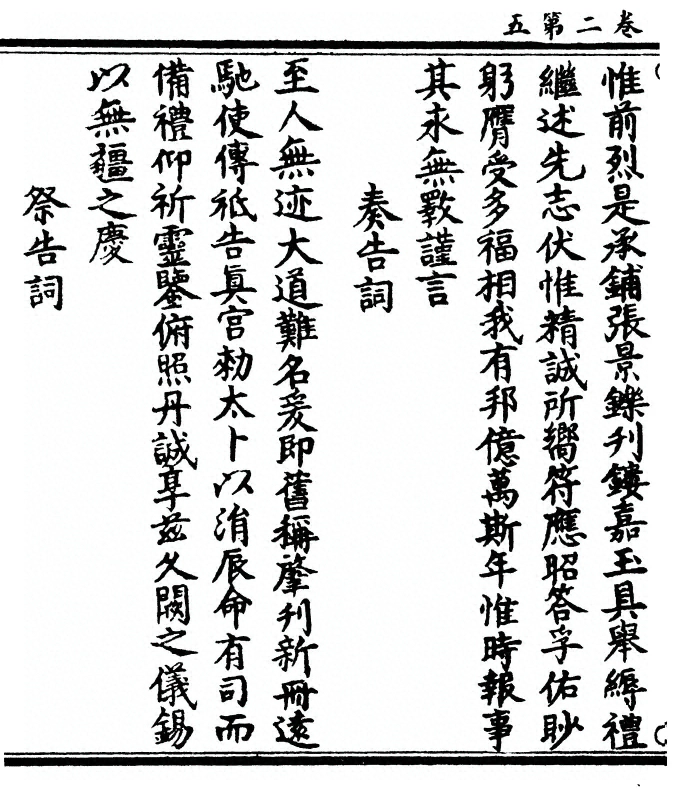 卷二第五
惟前烈是承鋪張景鑠刋鏤嘉玉具舉縟禮
繼述先志伏惟精誠所嚮符應昭答孚佑眇
躬膺受多福相我有邦億萬斯年惟時報事
其永無斁謹言
奏告詞
至人無迹大道難名爰即舊稱肇刋新冊遠
馳使傳祗告眞宫勑太卜以涓辰命有司而
備禮仰祈靈鑒俯照丹誠享兹久闕之儀錫
以無疆之慶
祭告詞